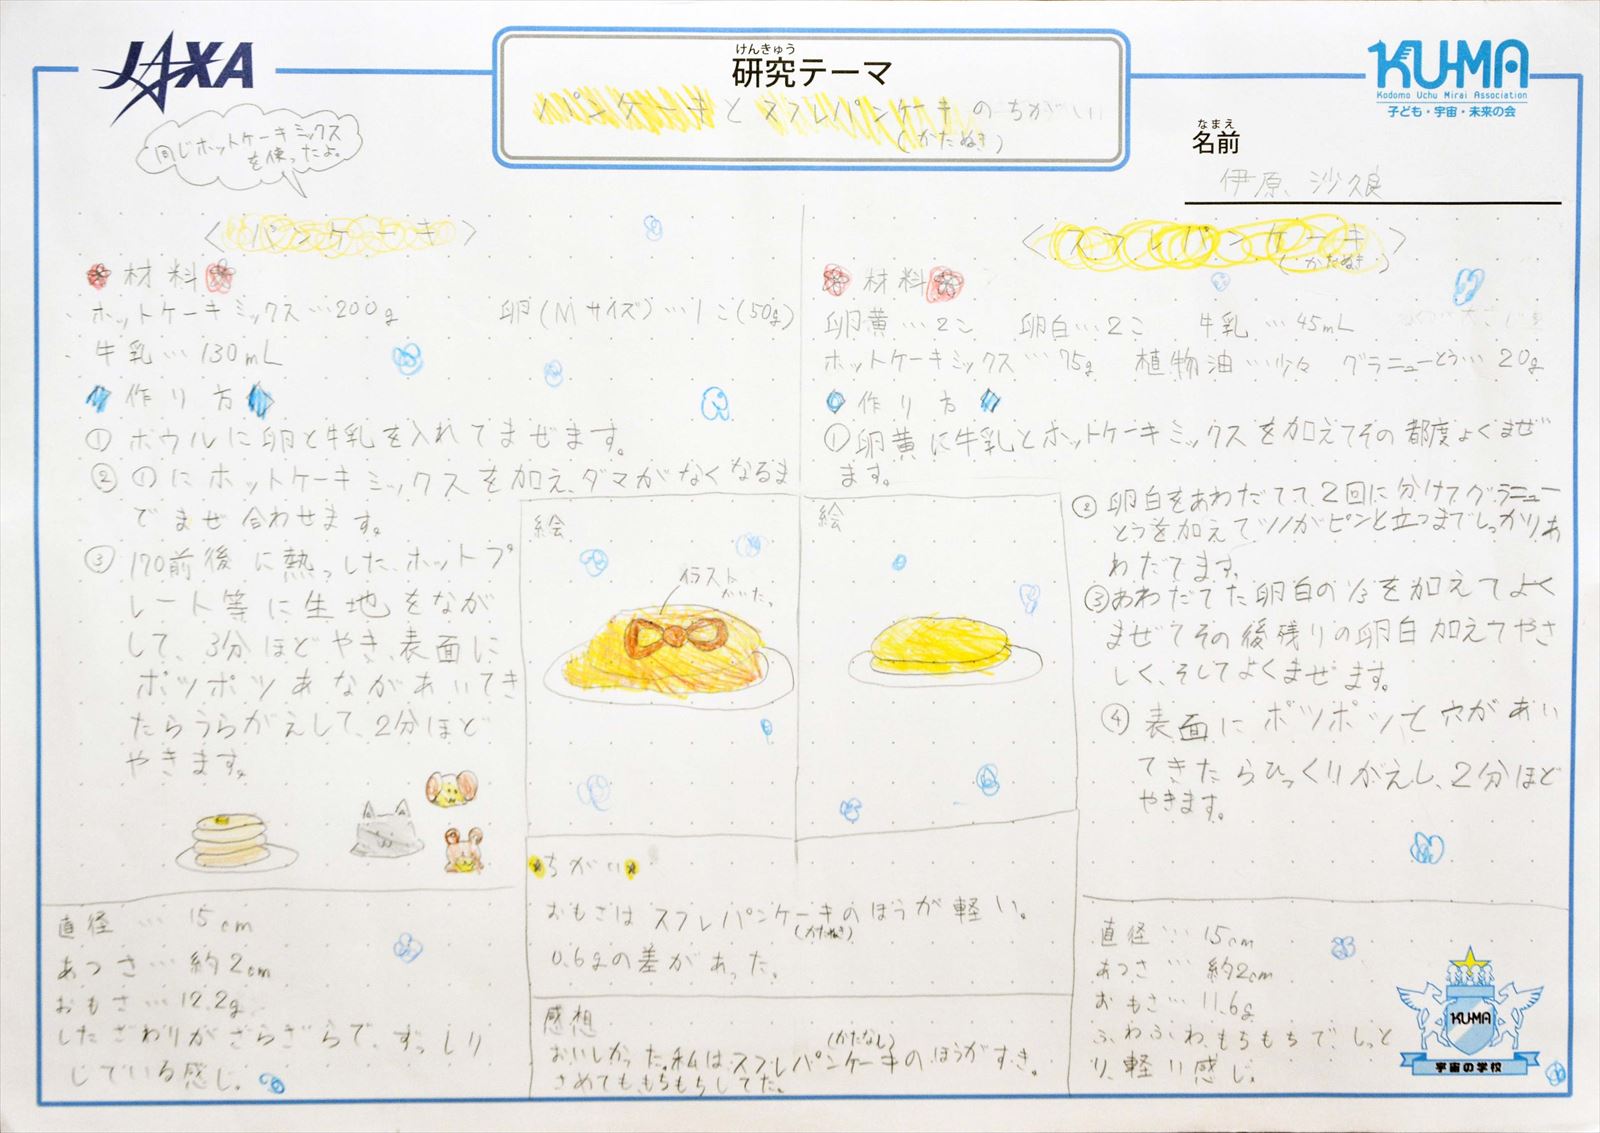 JAXA
けんきゅう
研究テーマ
パンケーキとスフレパンケーキのちがい
(かたぬき)
KU-MA
Kodomo Uchu Mirai Association
子ども・宇宙・未来の会
なまえ
名前
伊原 沙久良
同じホットケーキミックス
を使ったよ。
〈パンケーキ〉
材料
ホットケーキミックス…200g 卵(Mサイズ)…1こ(50g)
牛乳…130mL
作り方
① ボウルに卵と牛乳を入れてまぜます。
② ①にホットケーキミックスを加え、ダマがなくなるま
でまぜ合わせます。
③ 170前後に熱っしたホットプ
レート等に生地をなが
して、3分ほどやき、表面に
ポツポツあながあいてき
たらうらがえして、2分ほど
やきます。
絵
イラスト
かいた。
直径…15cm
あつさ…約2cm
おもさ…12.2g
したざわりがざらざらで、ずっしり
している感じ。
〈スフレパンケーキ〉
(かたぬき)
材料
卵黄…2こ 卵白…2こ 牛乳…45mL
ホットケーキミックス…75g 植物油…少々 グラニューとう…20g
作り方
① 卵黄に牛乳とホットケーキミックスを加えてその都度よくまぜ
ます。
絵
② 卵白をあわだてて、2回に分けてグラニュー
とうを加えてツノがピンと立つまでしっかりあ
わだてます。
③ あわだてた卵白の1/3を加えてよく
まぜてその後残りの卵白加えてやさ
しく、そしてよくまぜます。
④ 表面にポツポツと穴があい
てきたらひっくりがえし、2分ほど
やきます。
ちがい
おもさはスフレパンケーキのほうが軽い。
(かたぬき)
0.6gの差があった。
感想
(かたなし)
おいしかった。私はスフレパンケーキのほうがすき。
さめてももちもちしてた。
直径…15cm
あつさ…約2cm
おもさ…11.6g
ふわふわ、もちもちで、しっと
り、軽い感じ。
KU-MA
宇宙の学校